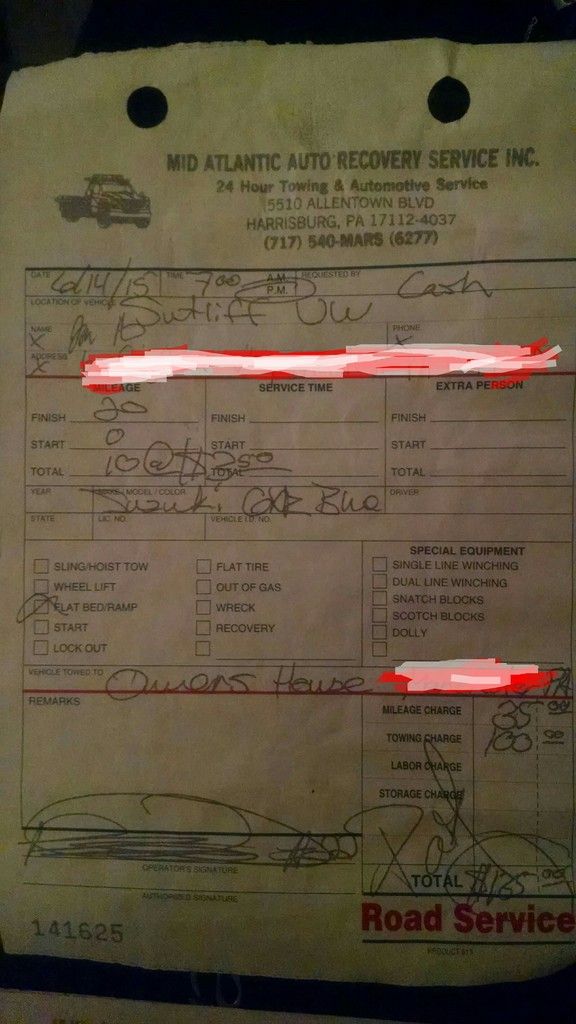 MID ATLANTIC AUTO RECOVERY SERVICE INC.
24 Hour Towing & Automotive Service
5510 ALLENTOWN BLVD
HARRISBURG, PA 17112-4037
(717) 540-MARS (6277)
DATE 6/14/15 TIME 7:00 A.M. P.M. REQUESTED BY Cash
LOCATION OF VEHICLE Sutliff VW
NAME X PHONE X
ADDRESS X
MILEAGE SERVICE TIME EXTRA PERSON
FINISH 20 FINISH FINISH
START 0 START START
TOTAL 10@$350 TOTAL TOTAL
YEAR MAKE/MODEL/COLOR Suzuki Blue DRIVER
STATE LIC. NO. VEHICLE I.D. NO.
SPECIAL EQUIPMENT
SLING/HOIST TOW FLAT TIRE SINGLE LINE WINCHING
WHEEL LIFT OUT OF GAS DUAL LINE WINCHING
FLAT BED/RAMP WRECK SNATCH BLOCKS
START RECOVERY SCOTCH BLOCKS
LOCK OUT DOLLY
VEHICLE TOWED TO Owners House PA
REMARKS
MILEAGE CHARGE 35 00
TOWING CHARGE 100 00
LABOR CHARGE
STORAGE CHARGE
Paid
OPERATOR'S SIGNATURE
TOTAL $135 00
AUTHORIZED SIGNATURE
141625
Road Service